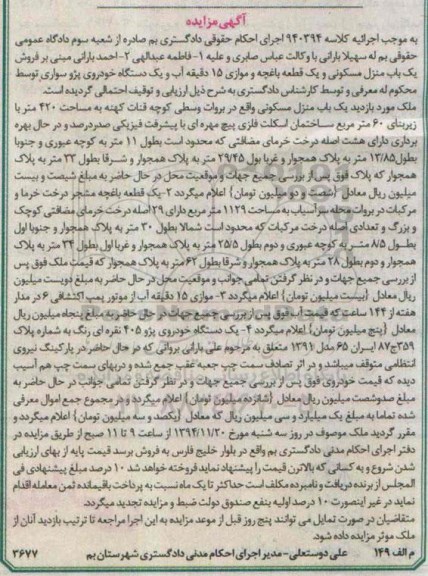 آگهی مزایده
به موجب اجرائیه کلاسه ۹۴۰۳۹۴ اجرای احکام حقوقی دادگستری بم صادره از شعبه سوم دادگاه عمومی
حقوقی بم له سهیلا بارانی با وکالت عباس صابری و علیه ۱- فاطمه عبدالهی ۲- احمد بارانی مبنی بر فروش
یک باب منزل مسکونی و یک قطعه باغچه و موازی ۱۵ دقیقه آب و یک دستگاه خودروی پژو سواری توسط
محکوم له معرفی و توسط کارشناس دادگستری به شرح ذیل ارزیابی و توقیف احتمالی گردیده است.
ملک مورد بازدید یک باب منزل مسکونی واقع در بروات وسطی کوچه قنات کهنه به مساحت ۴۲۰ متر با
زیربنای ۶۰ متر مربع ساختمان اسکلت فلزی پیچ مهره ای با پیشرفت فیزیکی صددرصد و در حال بهره
برداری دارای هشت اصله درخت خرمای مضافتی که محدود است بطول ۱۱ متر به کوچه عبوری و جنوبا
بطول ۱۳/۸۵ متر به پلاک همجوار و غربا بول ۲۹/۴۵ متر به پلاک همجوار و شرقا بطول ۳۳ متر به پلاک
همجوار که پلاک فوق پس از بررسی جمیع جهات و موقعیت محل در حال حاضر به مبلغ شیصت و بیست
میلیون ریال معادل {شصت و دو میلیون تومان} اعلام میگردد ۲- یک قطعه باغچه مشجر درخت خرما و
مرکبات در بروات محله سر آسیاب به مساحت ۱۱۲۹ متر مربع دارای ۲۹ اصله درخت خرمای مضافتی کوچک
و بزرگ و تعدادی اصله درخت مرکبات که محدود است شمالا بطول ۳۰ متر به پلاک همجوار و جنوبا اول
بطول ۸/۵ متر به کوچه عبوری و دوم بطول ۲۵/۵ متر به پلاک همجوار و غربا اول بطول ۳۴ متر به پلاک
همجوار و دوم بطول ۲۸ متر به پلاک همجوار و شرقا بطول ۶۲ متر به پلاک همجوار که قیمت ملک فوق پس
از بررسی جمیع جهات و در نظر گرفتن تمامی جوانب و موقعیت محل در حال حاضر به مبلغ دویست میلیون
ریال معادل {بیست میلیون تومان} اعلام میگردد ۳- موازی ۱۵ دقیقه آب از موتور پمپ اکتشافی ۶ در مدار
هفته از ۱۴۴ ساعت که قیمت آب فوق پس از بررسی جمیع جهات در حال حاضر به مبلغ پنجاه میلیون ریال
معادل {پنج میلیون تومان} اعلام میگردد ۴- یک دستگاه خودروی پژو ۴۰۵ نقره ای رنگ به شماره پلاک
۳۵۹ج۸۷ ایران ۶۵ مدل ۱۳۹۱ متعلق به مرحوم علی بارانی برواتی که در حال حاضر در پارکینگ نیروی
انتظامی متوقف میباشد و در اثر تصادف سمت چپ جعبه عقب جمع شده و دربهای سمت چپ هم آسیب
دیده که قیمت خودروی فوق پس از بررسی جمیع جهات و در نظر گرفتن تمامی جوانب در حال حاضر به
مبلغ صدوشصت میلیون ریال معادل {شانزده میلیون تومان} اعلام میگردد و در مجموع جمع اموال معرفی
شده تماما به مبلغ یک میلیارد و سی میلیون ریال که معادل {یکصد و سه میلیون تومان} اعلام میگردد و
مقرر گردید ملک موصوف در روز سه شنبه مورخ ۱۳۹۴/۱۱/۲۰ از ساعت ۹ تا ۱۱ صبح از طریق مزایده در
دفتر اجرای احکام مدنی دادگستری بم واقع در بلوار خلیج فارس به فروش برسد قیمت پایه از بهای ارزیابی
شدن شروع و به کسانی که بالاترن قیمت را پیشنهاد نماید فروخته خواهد شد ۱۰ درصد مبلغ پیشنهادی فی
المجلس از برنده دریافت و نامبرده مکلف است حداکثر تا یک ماه نسبت به پرداخت باقیمانده ثمن معامله اقدام
نماید در غیر اینصورت ۱۰ درصد اولیه بنفع صندوق دولت ضبط و مزایده تجدید میگردد.
متقاضیان در صورت تمایل می توانند پنج روز قبل از موعد مزایده به این اجرا مراجعه تا ترتیب بازدید آنان از
ملک موثر مزایده داده شود.
م الف ۱۴۹ علی دوستعلی - مدیر اجرای احکام مدنی دادگستری شهرستان بم ۳۶۷۷